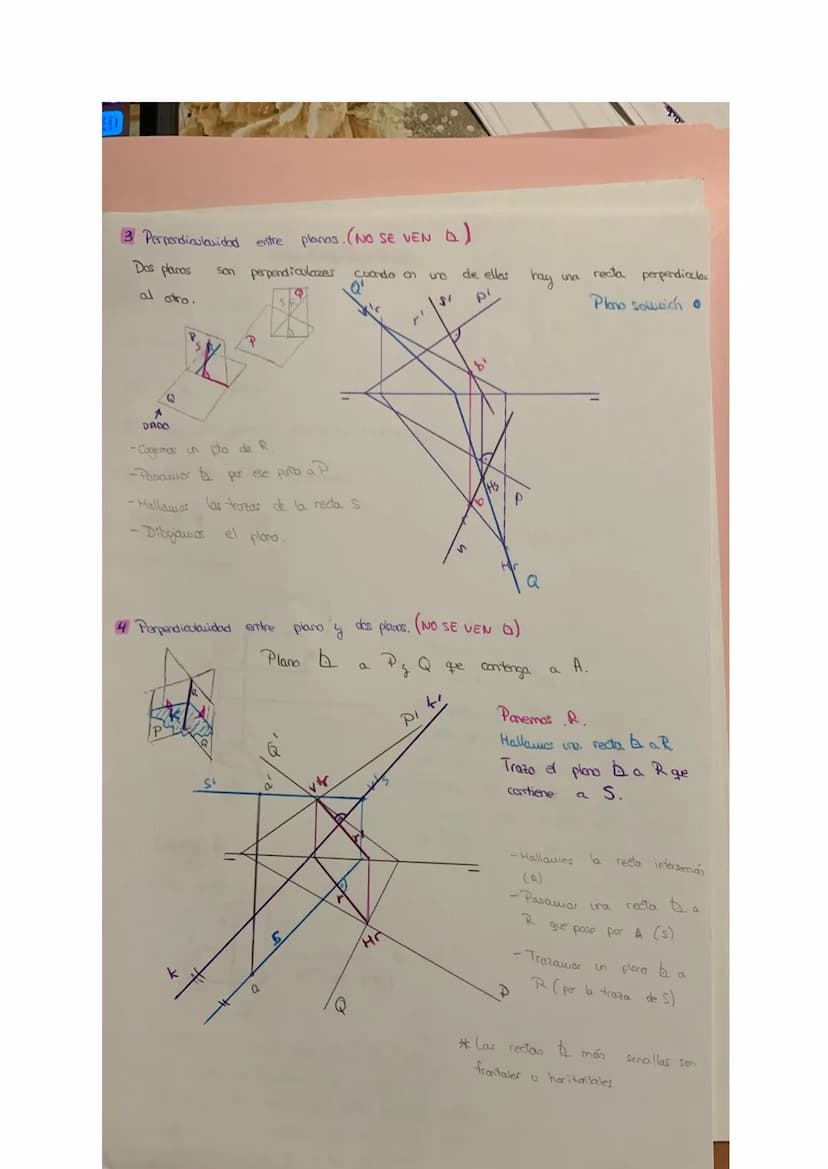 3 Perpendicularidad entre planos. (NO SE VEN ⊾)
Dos planos son perpendiculares cuando en uno de ellos hay una recta perpendicular
al otro.
Plano solución
Q'
V'r
r'
s'
P'
b'
Q
S
P
P
S
R
Q
DADO
- Cogemos un pto de R
- Pasamos ⊾ por ese punto a P
- Hallamos las trazas de la recta S
- Dibujamos el plano.
b
Hs
P
s
Hr
Q
4 Perpendicularidad entre plano y dos planos. (NO SE VEN ⊾)
Plano ⊾ a P y Q que contenga a A.
R
K
P
Q
Q'
P'
k'
Ponemos R.
Hallamos una recta ⊾ a R
Trazo el plano ⊾ a R que
contiene a S.
s'
a'
V'r
V's
r'
- Hallamos la recta intersección
(R)
- Pasamos una recta ⊾ a
R que pase por A (S)
- Trazamos un plano ⊾ a
R (por la traza de S)
r
s
Hr
k
a
Q
P
* Las rectas ⊾ más sencillas son
frontales u horizontales